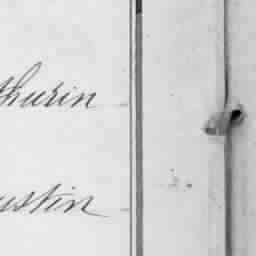 thurin
ustin